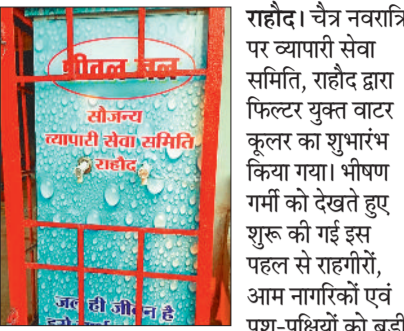 शीतल जल
सौजन्य
व्यापारी सेवा समिति
राहौद
जल ही जीवन है
राहौद। चैत्र नवरात्रि
पर व्यापारी सेवा
समिति, राहौद द्वारा
फिल्टर युक्त वाटर
कूलर का शुभारंभ
किया गया। भीषण
गर्मी को देखते हुए
शुरू की गई इस
पहल से राहगीरों,
आम नागरिकों एवं
पशु-पक्षियों को बड़ी